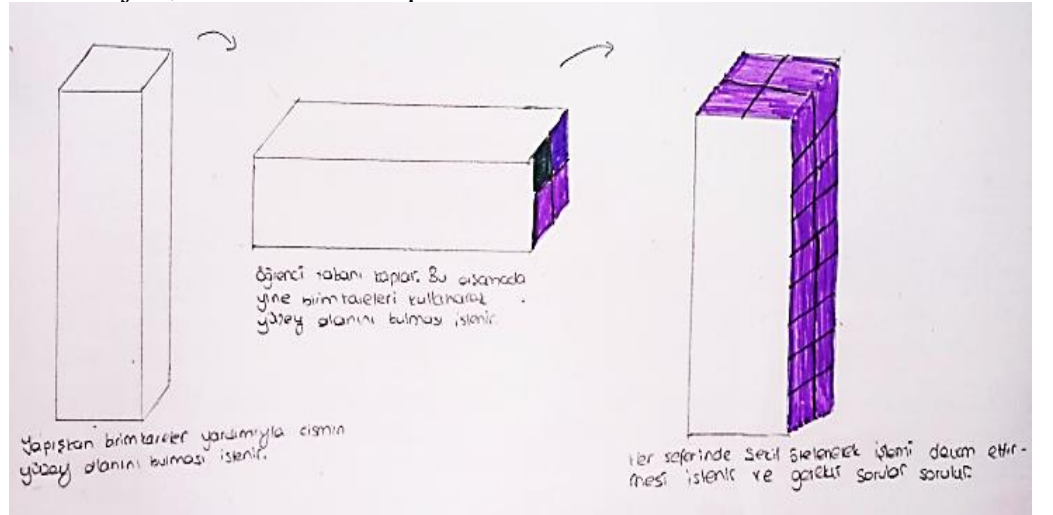 Yapışkan birim kareler yardımıyla cismin
yüzey alanını bulması istenir.
öğrenci tabanı kaplar. Bu aşamada
yine birim kareleri kullanarak
yüzey alanını bulması istenir.
Her seferinde şekil ötelenerek işlemi devam ettir-
mesi istenir ve gerekli sorular sorulur.